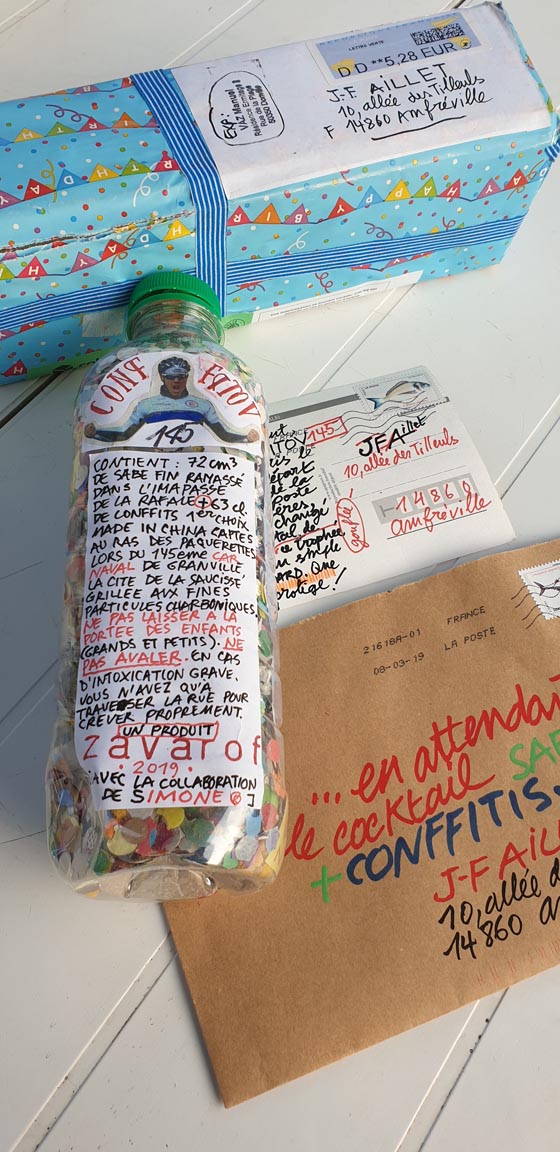 LETTRE VERTE
DD **5,28 EUR
J-F AILLET
10, allée des Tilleuls
F 14860 Amfréville
EXP:
VAZ Manuel
Résidence Ermitage II
Rue de la Plage
CONF FITOV
145
CONTIENT : 72 cm3
DE SABE FIN RAMASSÉ
DANS L'IMAPASSE
DE LA RAFALE + 63 cl.
DE CONFFITS 1er CHOIX
MADE IN CHINA CAPTÉS
AU RAS DES PÂQUERETTES
LORS DU 145ème CAR
NAVAL DE GRANVILLE
LA CITÉ DE LA SAUCISSE
GRILLÉE AUX FINES
PARTICULES CHARBONIQUES
NE PAS LAISSER À LA
PORTÉE DES ENFANTS
(GRANDS ET PETITS). NE
PAS AVALER. EN CAS
D'INTOXICATION GRAVE,
VOUS N'AVEZ QU'À
TRAVERSER LA RUE POUR
CREVER PROPREMENT.
UN PRODUIT
zavarof
• 2019 •
AVEC LA COLLABORATION
DE SIMONE
145
JFAillet
10, allée des Tilleuls
14860
amfréville
21618A-01 FRANCE
08-03-19 LA POSTE
... en attendant
le cocktail SAB
+CONFFITIS.
J-F AIL
10, allée d
14860 am